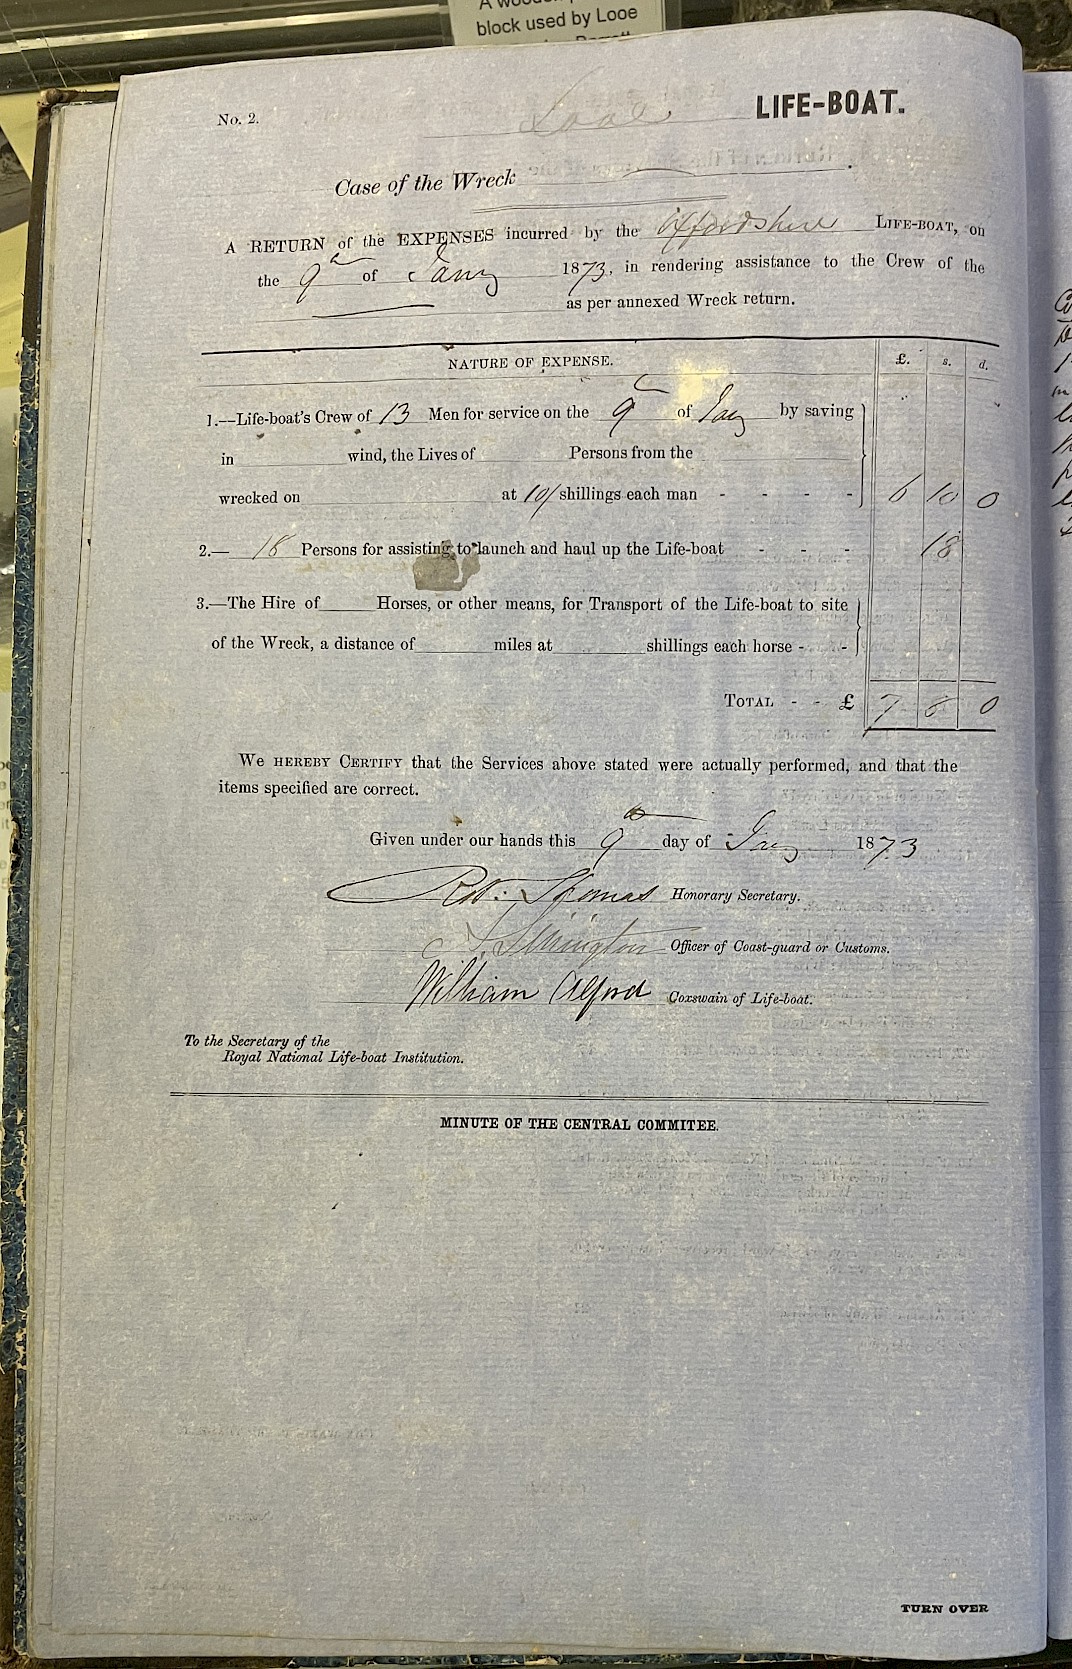 block used by Looe
No. 2.
Looe
LIFE-BOAT.
Case of the Wreck
A RETURN of the EXPENSES incurred by the Oxfordshire LIFE-BOAT, on
the 9th of Jany 1873, in rendering assistance to the Crew of the
as per annexed Wreck return.
NATURE OF EXPENSE. £. s. d.
1.—Life-boat's Crew of 13 Men for service on the 9th of Jany by saving
in wind, the Lives of Persons from the
wrecked on at 10/ shillings each man - - - - 6 10 0
2.— 18 Persons for assisting to launch and haul up the Life-boat - - - 18
3.—The Hire of Horses, or other means, for Transport of the Life-boat to site
of the Wreck, a distance of miles at shillings each horse - -
TOTAL - - £ 7 8 0
WE HEREBY CERTIFY that the Services above stated were actually performed, and that the
items specified are correct.
Given under our hands this 9th day of Jany 1873
Rob: Thomas Honorary Secretary.
Officer of Coast-guard or Customs.
William Alford Coxswain of Life-boat.
To the Secretary of the
Royal National Life-boat Institution.
MINUTE OF THE CENTRAL COMMITEE.
TURN OVER